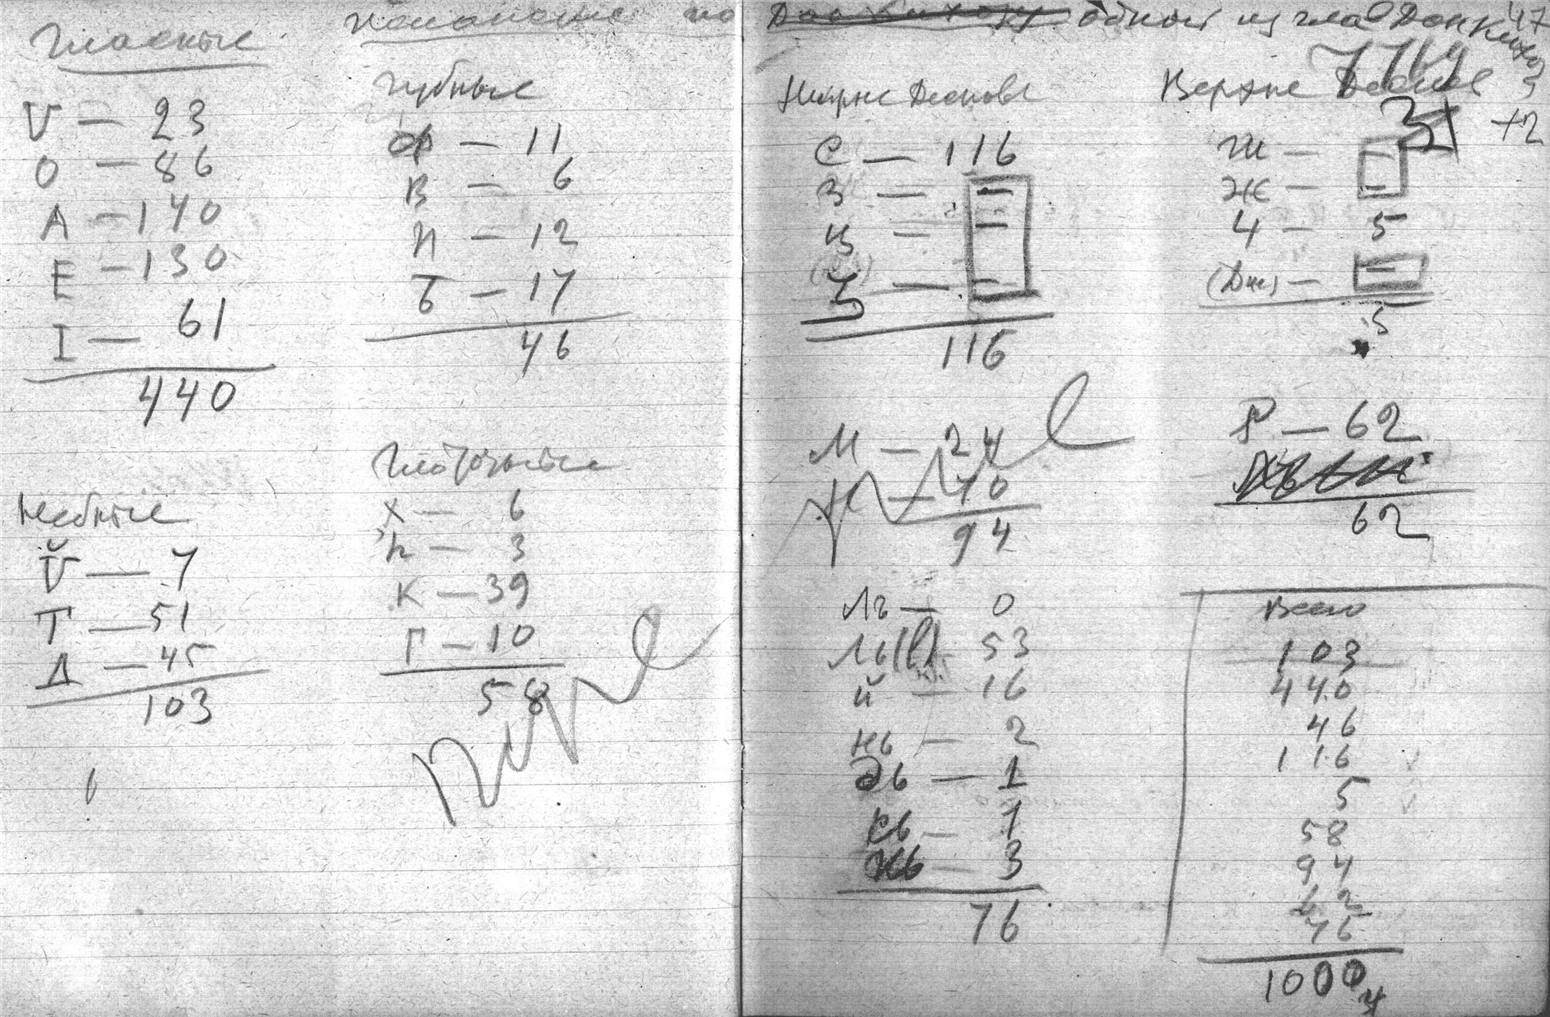 Гласные
V — 23
О — 86
А — 140
Е — 130
I — 61
440
Небные
V̆ — 7
Т — 51
Д — 45
103
по
губные
Ф — 11
В — 6
П — 12
Б — 17
46
Глоточные
Х — 6
h — 3
К — 39
Г — 10
58
одной из глав Дон Кихота
47
7764
31
+2
С — 116
З — –
Ц — –
3 — –
116
М — 24
70
94
Ль — 0
Ль(l) — 53
Й — 16
Нь — 2
Дь — 1
1
3
76
Верхне
Ш — –
Ж — –
Ч — 5
(Дж) — –
5
Р — 62
62
Всего
103
440
46
116
5
58
94
62
76
1000